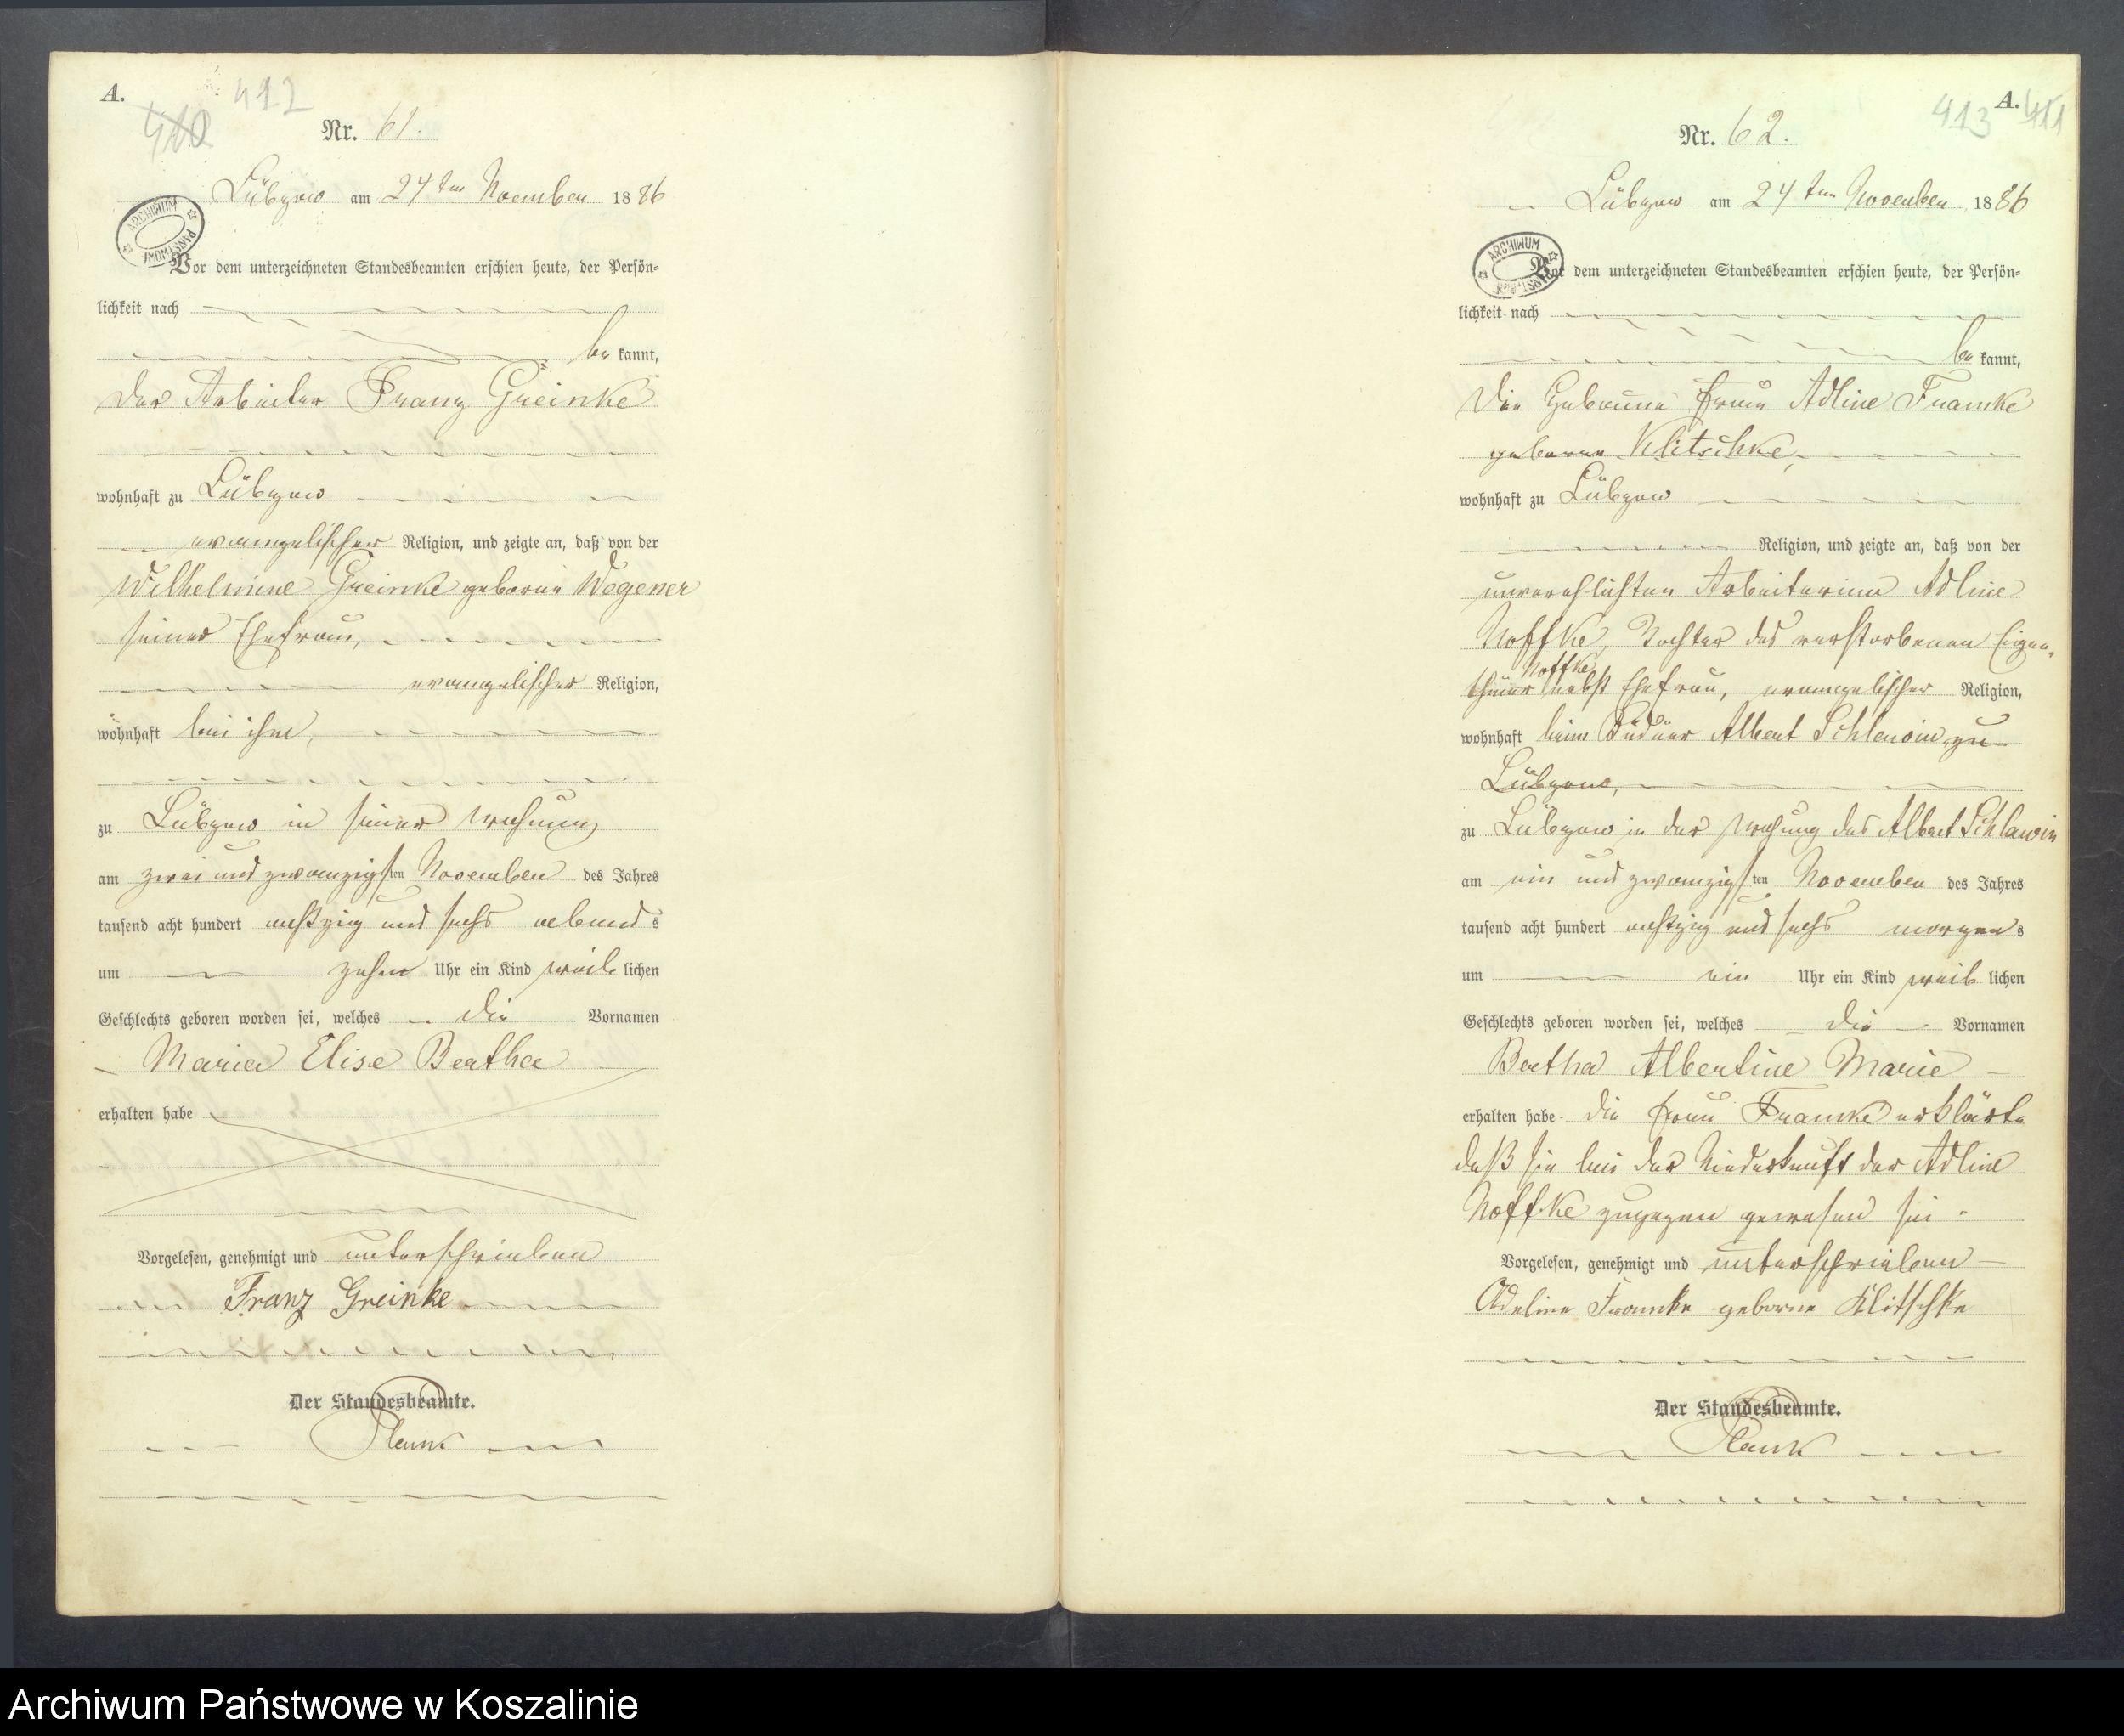 A.
412
410
Nr. 61.
Lübzow am 24ten November 1886
ARCHIWUM PAŃSTWOWE
Vor dem unterzeichneten Standesbeamten erschien heute, der Persön-
lichkeit nach
be kannt,
der Arbeiter Franz Greinke
wohnhaft zu Lübzow
evangelischer Religion, und zeigte an, daß von der
Wilhelmine Greinke geborne Wegener
seiner Ehefrau,
evangelischer Religion,
wohnhaft bei ihm,
zu Lübzow in seiner Wohnung
am zwei und zwanzigsten November des Jahres
tausend acht hundert achtzig und sechs abends
um zehn Uhr ein Kind weiblichen
Geschlechts geboren worden sei, welches die Vornamen
Maria Elise Bertha
erhalten habe
Vorgelesen, genehmigt und unterschrieben
Franz Greinke
Der Standesbeamte.
Plank
A.
413
411
Nr. 62.
Lübzow am 24ten November 1886
ARCHIWUM
Vor dem unterzeichneten Standesbeamten erschien heute, der Persön-
lichkeit nach
be kannt,
Die Hebamme Frau Adline Framke
geborne Klitschke,
wohnhaft zu Lübzow
Religion, und zeigte an, daß von der
unverehlichten Arbeiterinn Adline
Noffke, Tochter des verstorbenen Eigen-
thümer Noffke nebst Ehefrau, evangelischer Religion,
wohnhaft beim Büdner Albert Schlewin zu
Lübzow,
zu Lübzow in der Wohung des Albert Schlawin
am ein und zwanzigsten November des Jahres
tausend acht hundert achtzig und sechs morgens
um ein Uhr ein Kind weiblichen
Geschlechts geboren worden sei, welches die Vornamen
Bertha Albertine Marie
erhalten habe die Frau Framke erklärte
daß sie bei der Niederkunft der Adline
Noffke zugegen gewesen sei.
Vorgelesen, genehmigt und unterschrieben
Adeline Framke geborne Klitschke
Der Standesbeamte.
Plank
Archiwum Państwowe w Koszalinie